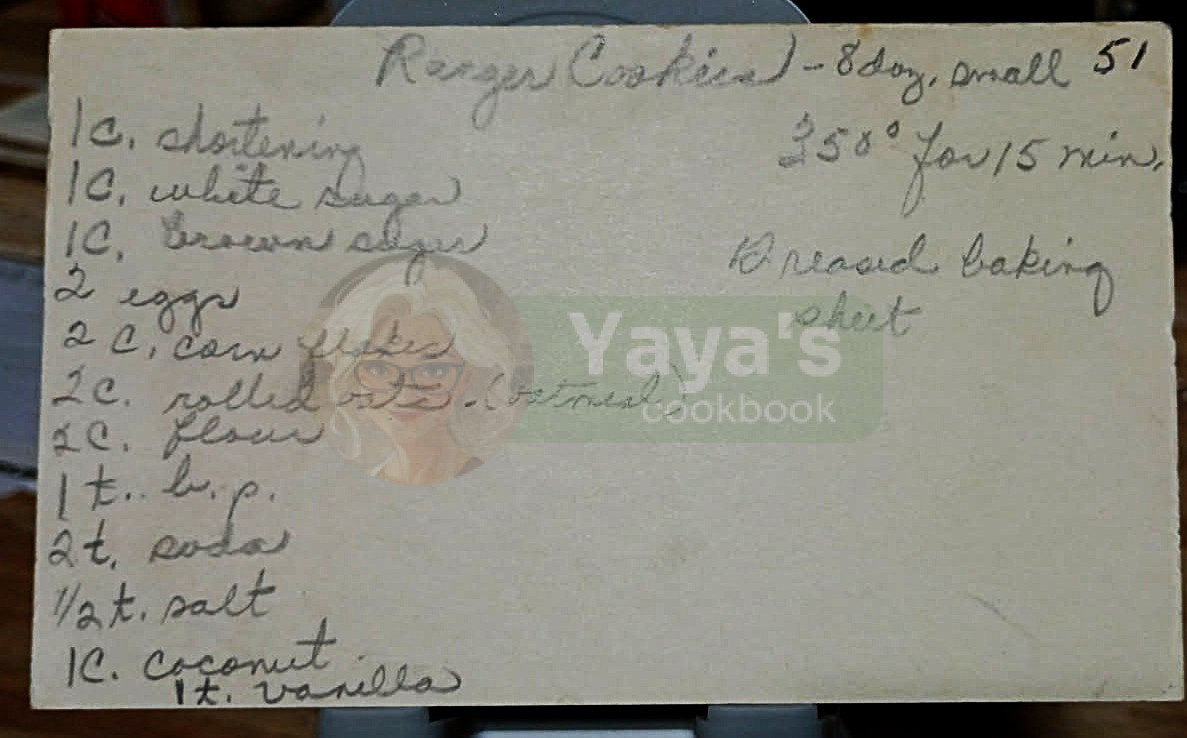 Ranger Cookies - 8 doz. small 51
350° for 15 min.
1c. shortening
1C. white sugar
1C. brown sugar
Greased baking
sheet
2 eggs
2 C. corn flakes
2C. rolled oats - (oatmeal)
2C. flour
1 t.. b.p.
2t. soda
1/2 t. salt
1C. coconut
1t. vanilla
Yaya's
cookbook